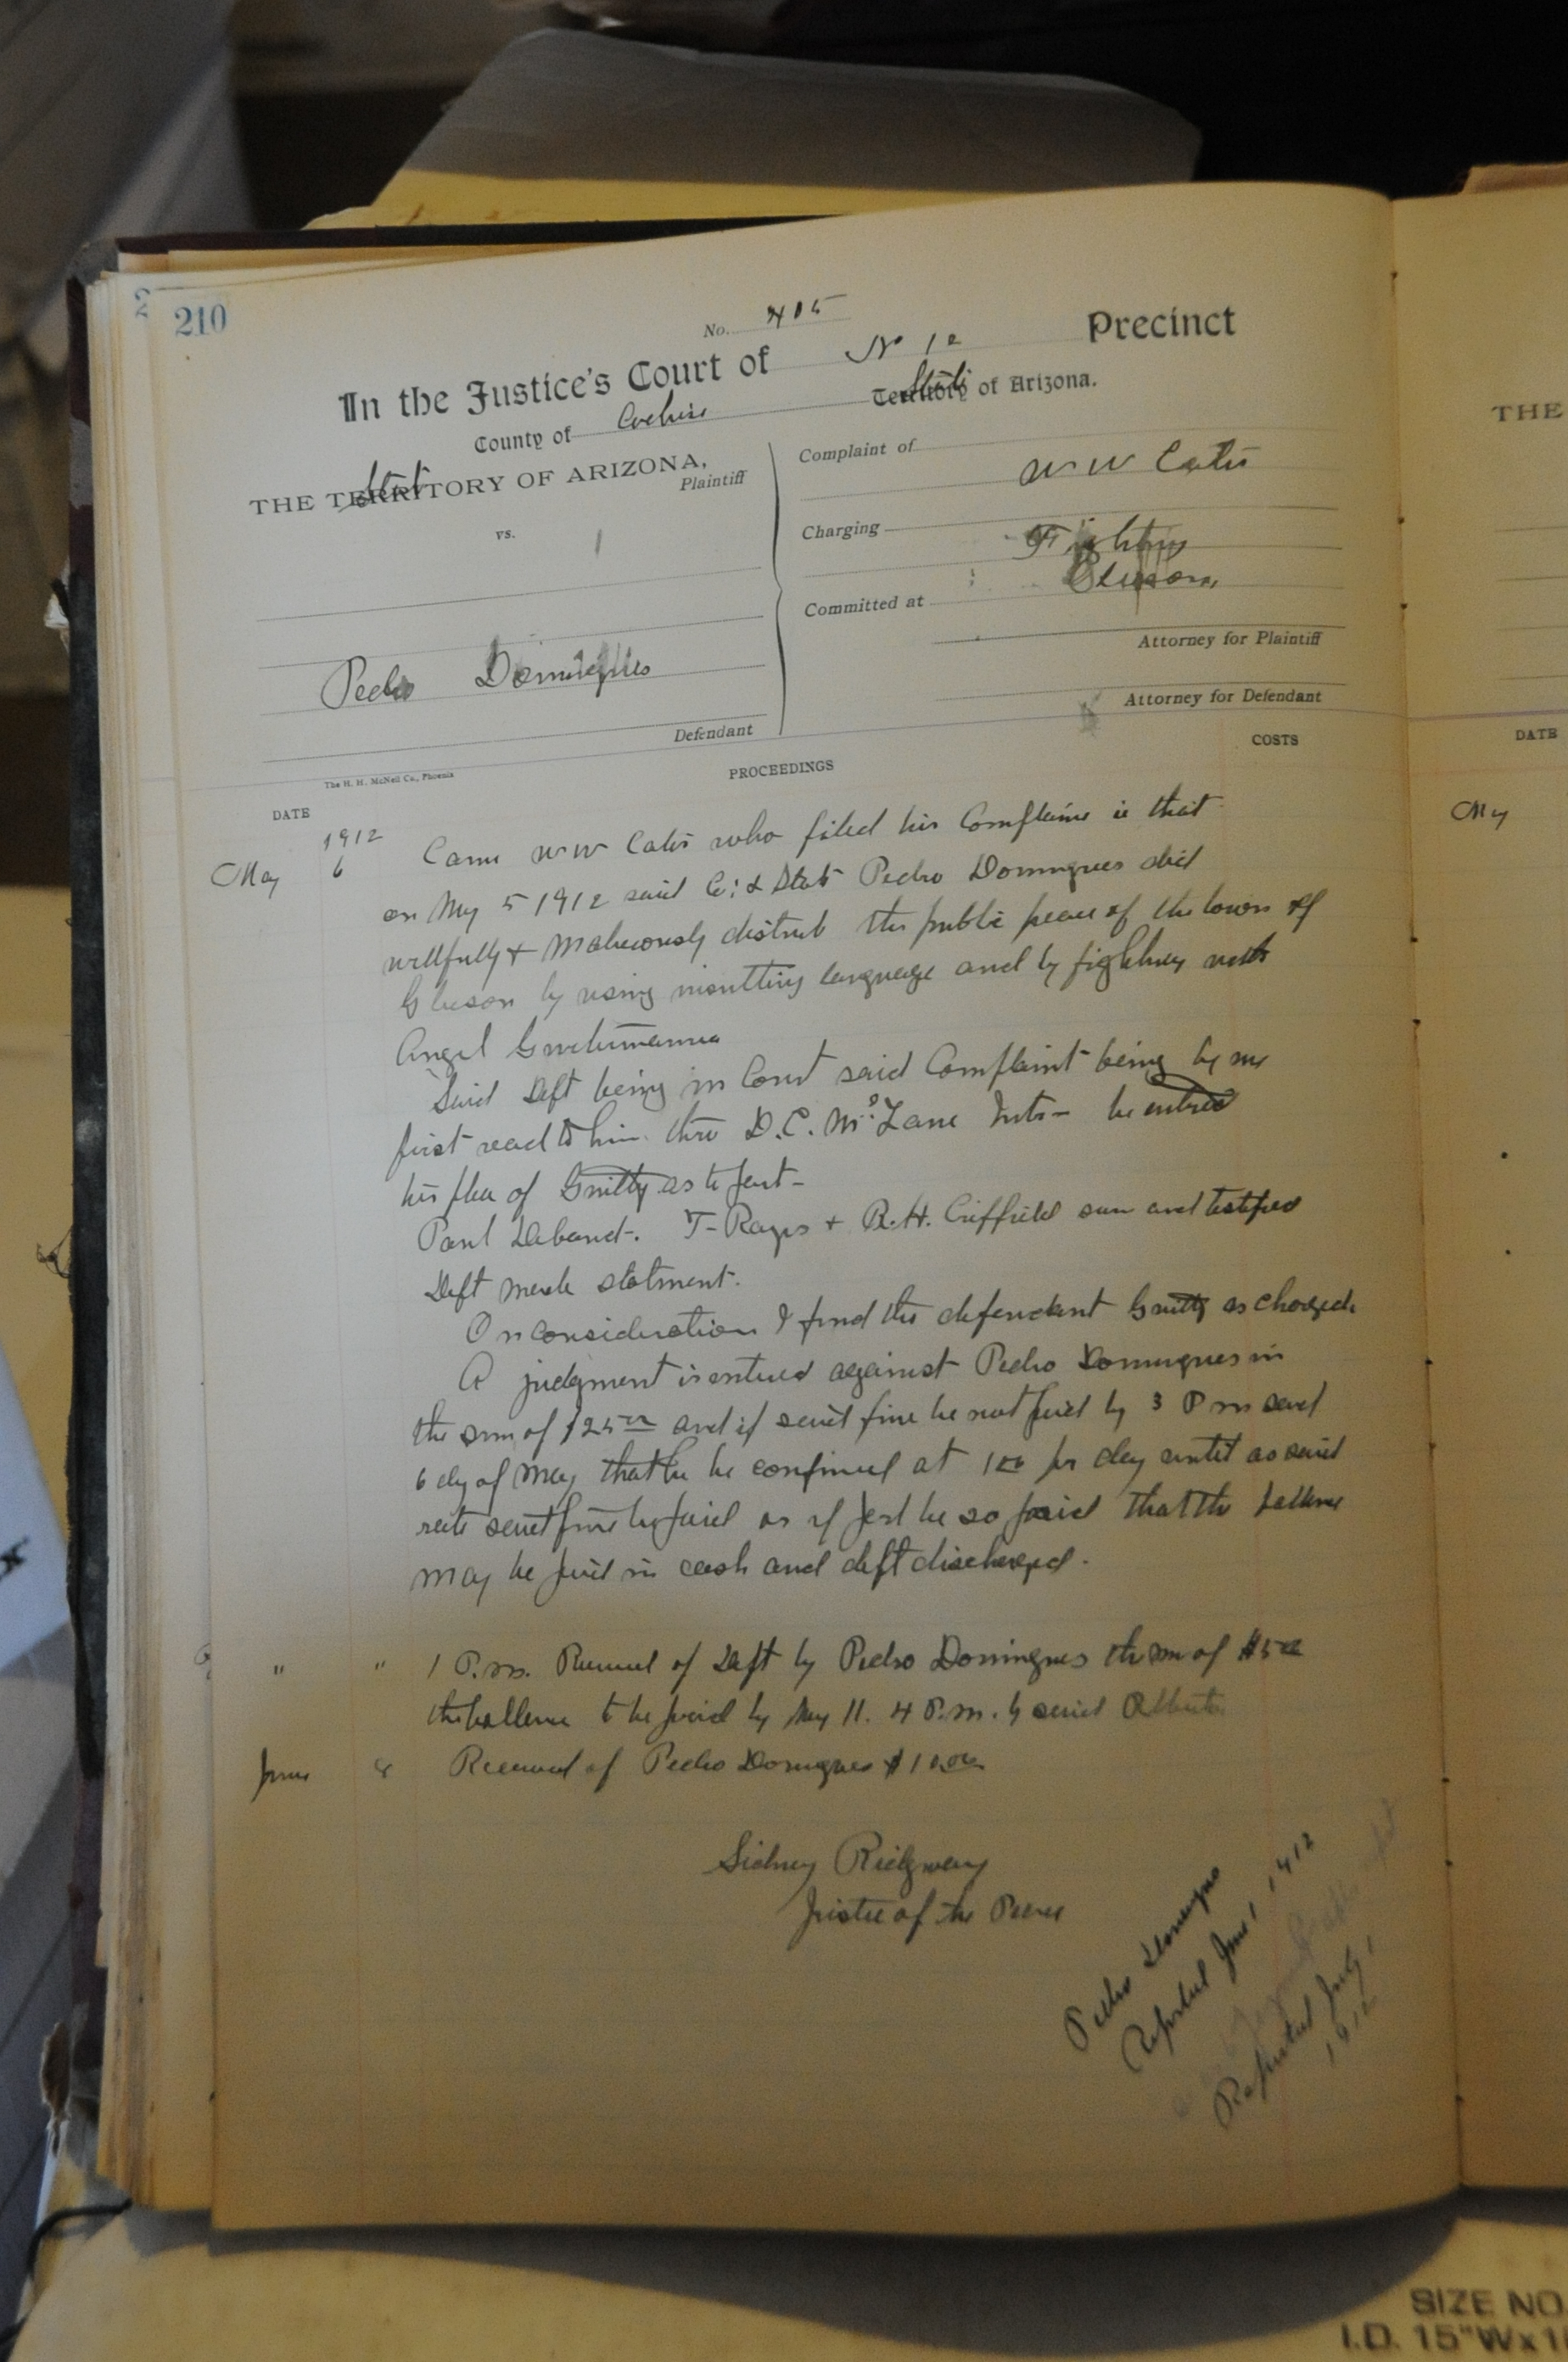 2
210
No. 415
In the Justice's Court of No 12 Precinct
County of Cochise State Territory of Arizona.
State
THE TERRITORY OF ARIZONA,
Plaintiff
vs.
Pedro Domingues
Defendant
Complaint of W W Cates
Charging Fighting
Committed at Gleeson,
Attorney for Plaintiff
Attorney for Defendant
The H. H. McNeil Co., Phoenix
PROCEEDINGS
COSTS
DATE
1912
May 6 Came W W Cates who filed his Complaint that
on May 5 1912 said Co & State Pedro Domingues did
willfully + Maliciously disturb the public peace of the town of
Gleeson by using insulting language and by fighting with
Angel
Said Deft being in Court said Complaint being by me
first read to him thro D.C. McLane he entred
his plea of Guilty as to
Paul + R.H. Criffield and testified
Deft made statment.
On consideration I find the defendant Guilty as charged.
A judgment is entred against Pedro Domingues in
the sum of $25 and if said fine be not paid by 3 P m said
6 dy of May that he be confined at 1 00 pr day until as said
rate said fine be paid or if part be so paid that the ballence
may be paid in cash and deft discharged.
" " 1 P.m. Received of Deft by Pedro Domingues the sum of $5 00
the ballence to be paid by May 11. 4 P.m. by said
June 8 Received of Pedro Domingues $10.00
Sidney Ridgway
Justice of the Peace
Pedro Domingues
Reported June 1 1912
Reported July 1
1912
THE
DATE
May
SIZE NO.
I.D. 15"W x 1